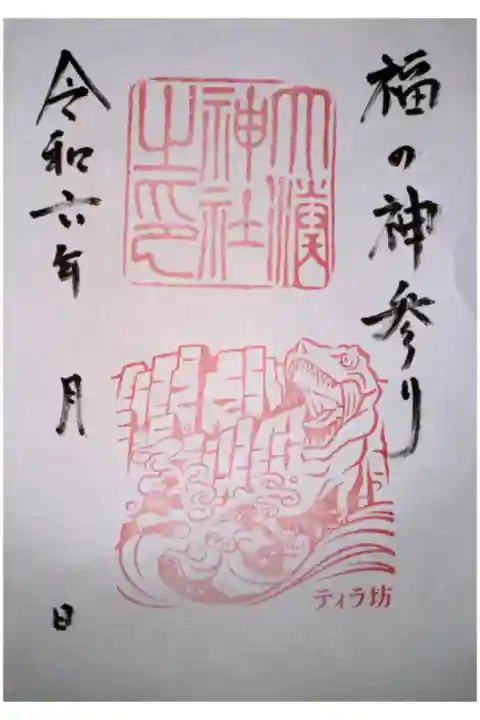 福の神参り
大濱
神社
之印
ティラ坊
令和六年 月 日